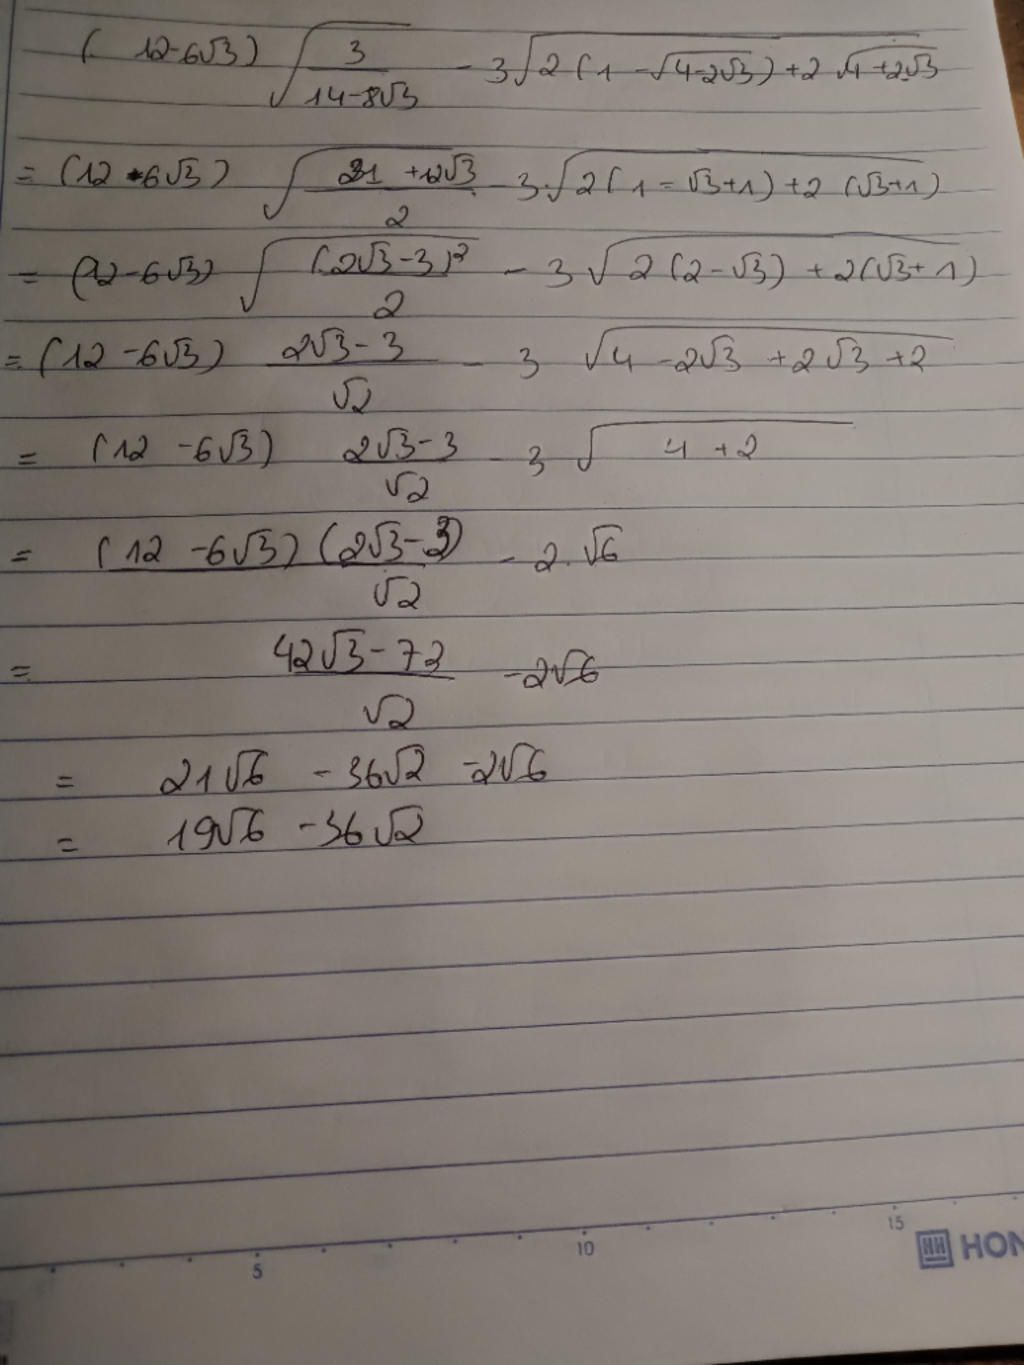 (12-6√3) √(3/(14-8√3)) - 3√(2(1-√(4-2√3))+2√(4+2√3))
= (12-6√3) √((21+12√3)/2) - 3√(2(1-√3+1)+2(√3+1))
= (12-6√3) √((2√3-3)²/2) - 3√(2(2-√3)+2(√3+1))
= (12-6√3) (2√3-3)/√2 - 3 √(4-2√3+2√3+2)
= (12-6√3) (2√3-3)/√2 - 3 √(4+2)
= (12-6√3)(2√3-3)/√2 - 2.√6
= (42√3-72)/√2 -2√6
= 21√6 - 36√2 -2√6
= 19√6 -36√2
5 10 15 HON